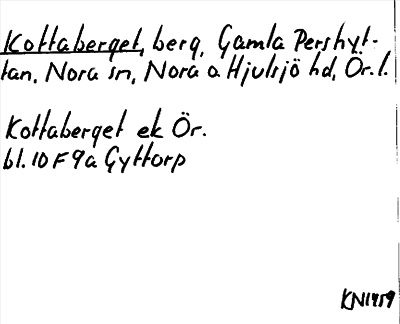 Kottaberget, berg, Gamla Pershyt-
tan, Nora sn, Nora o Hjulsjö hd, Ör. l.
Kottaberget ek Ör.
bl. 10 F 9a Gyttorp
KN1959